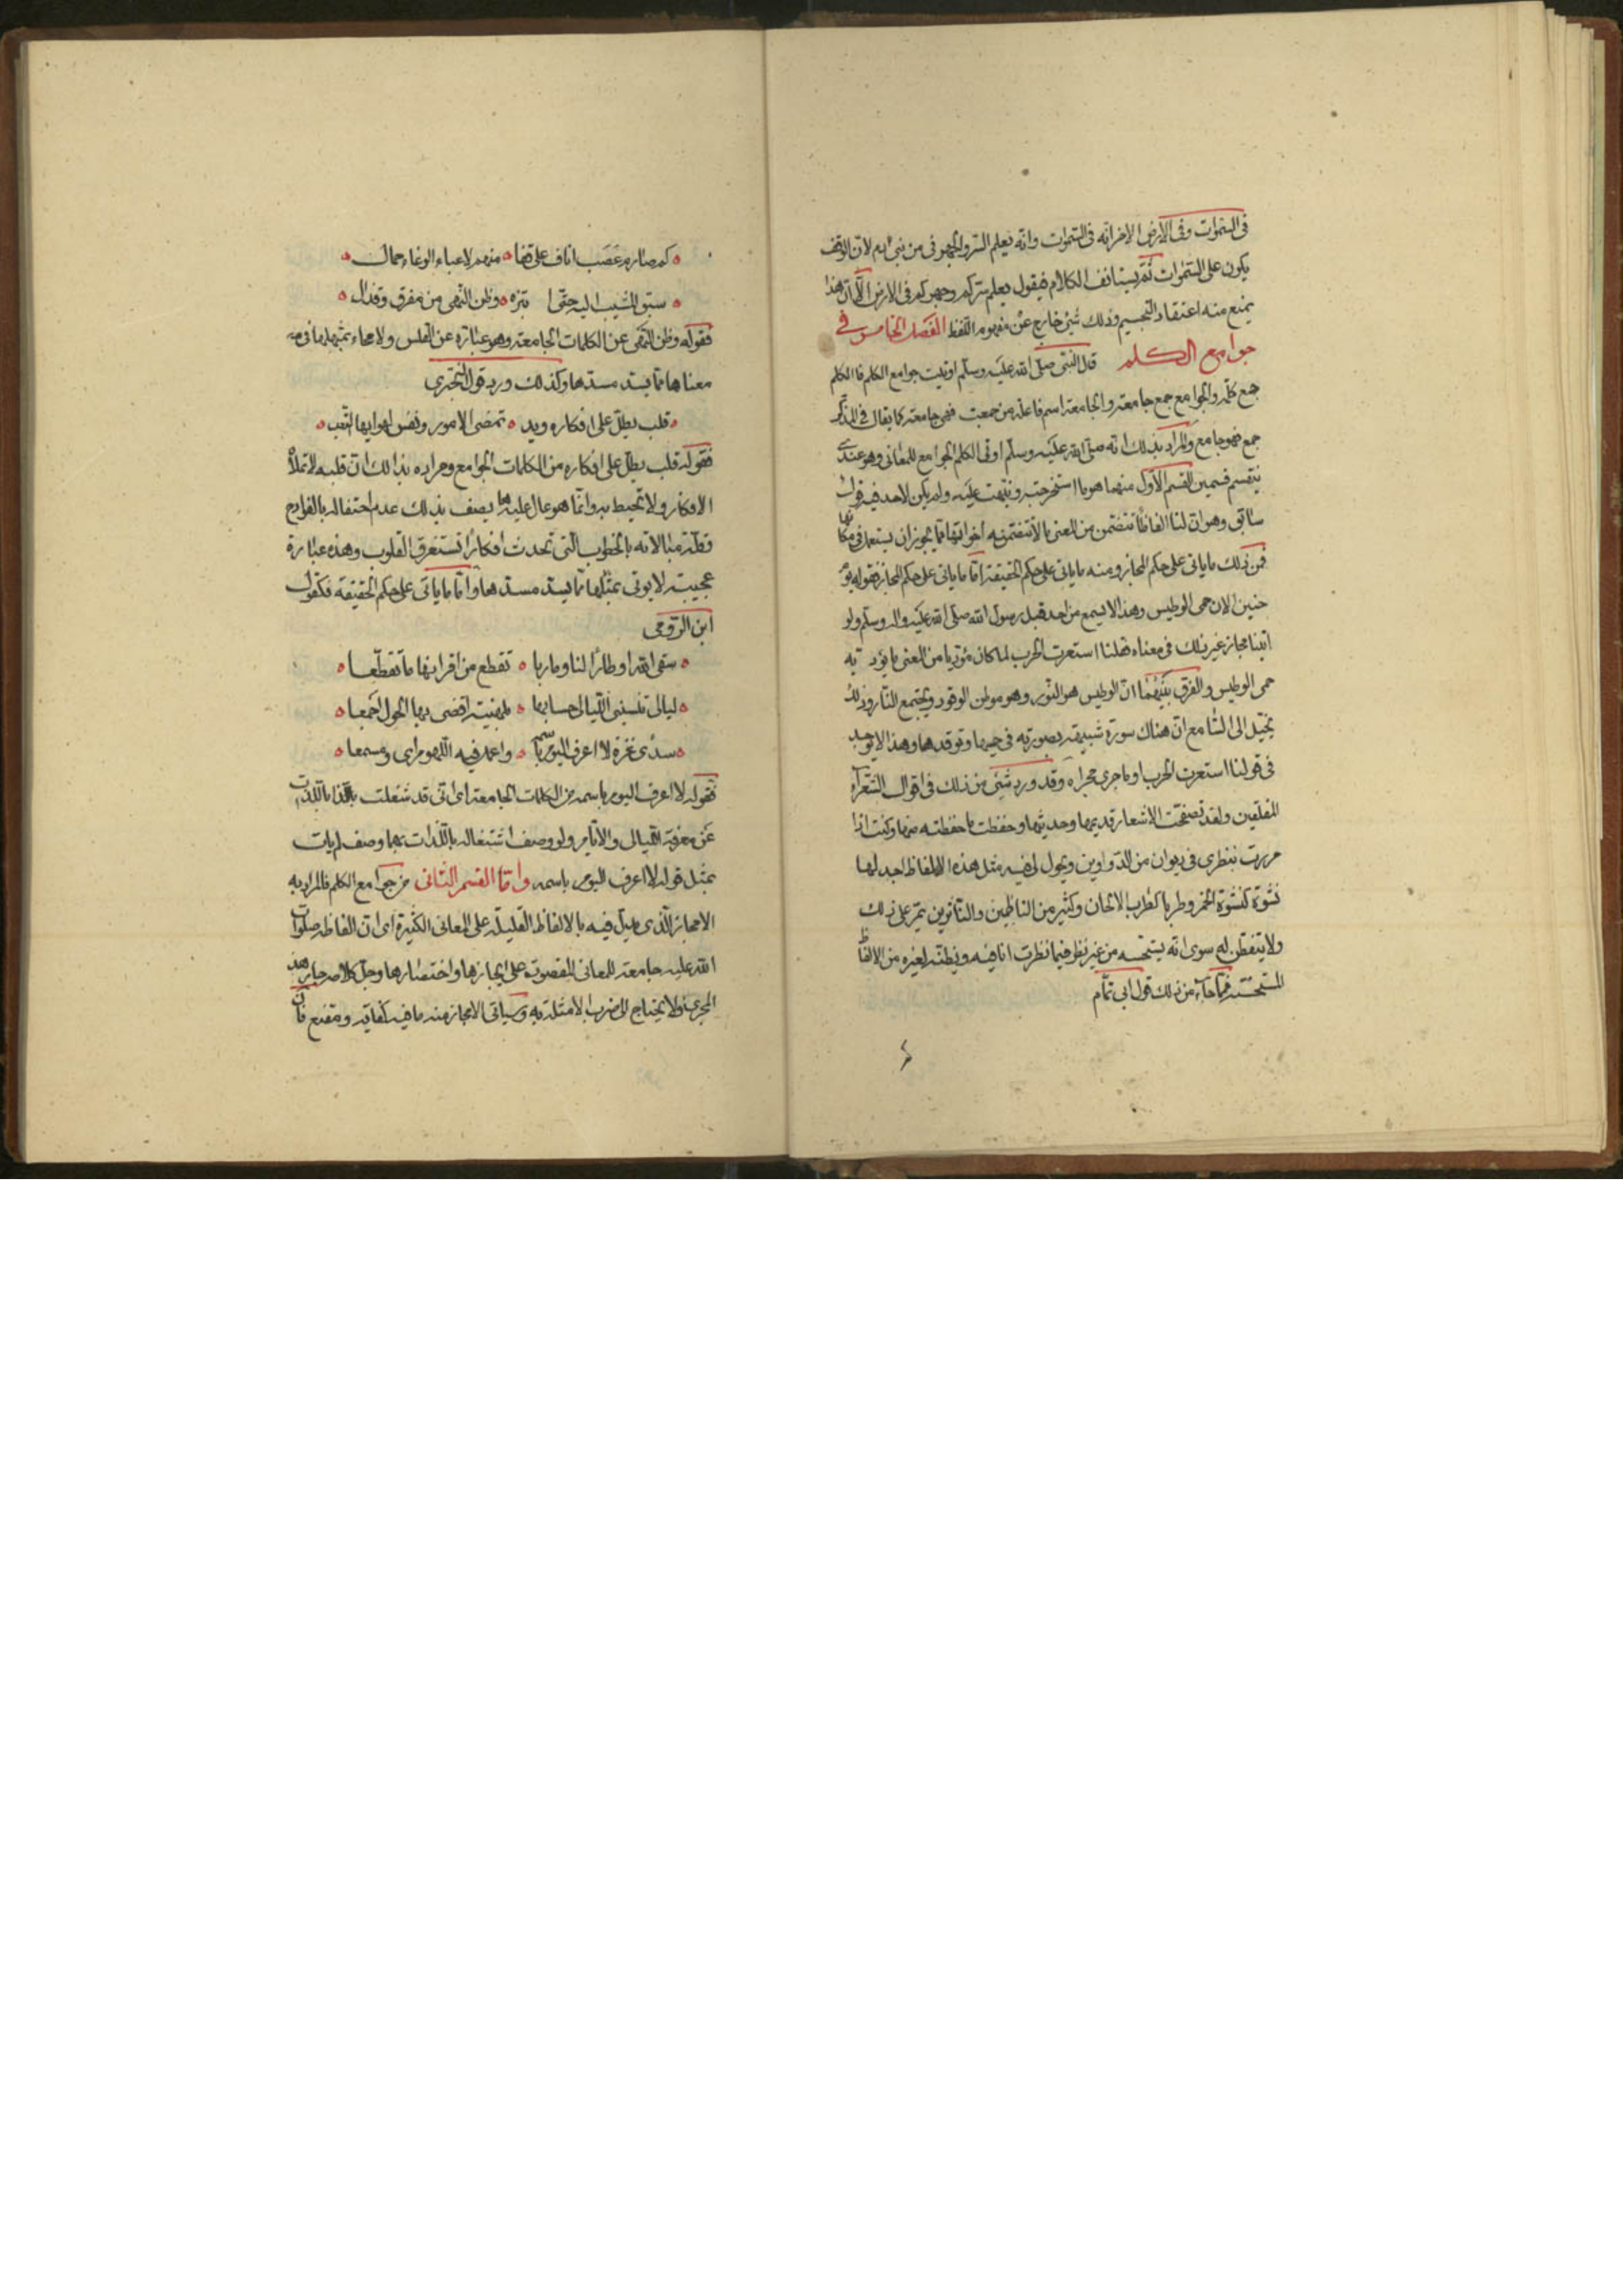 في السموات وفي الارض الاخر انه في السموات وانه يعلم السر والجهر في من بني ادم لان الوقف
يكون على السموات ثم يستانف الكلام فيقول يعلم سركم وجهركم في الارض الا ان هذا
يمنع منه اعتقاد التجسيم وذلك شئ خارج عن مفهوم اللفظ الفصل الخامس في
جوامع الكلم قال النبي صلى الله عليه وسلم اوتيت جوامع الكلم فالكلم
جمع كلمة والجوامع جمع جامعة والجامعة اسم فاعلة من جمعت فهي جامعة كما يقال في المذكر
جمع فهو جامع والمراد بذلك انه صلى الله عليه وسلم اوتى الكلم الجوامع للمعاني وهو عندي
ينقسم قسمين القسم الاول منهما هو ما استخرجته ونبهت عليه ولم يكن لاحد فيه قول
سابق وهو ان لنا الفاظا تتضمن من المعنى ما لا تتضمنه اخواتها مما يجوز ان يستعمل في مكانها
فمن ذلك ما ياتي على حكم المجاز ومنه ما ياتي على حكم الحقيقة اما ما ياتي على حكم المجاز فقوله يوم
حنين الان حمى الوطيس وهذا لا يسمع من احد قبل رسول الله صلى الله عليه واله وسلم ولو
اتينا بمجاز غير ذلك في معناه فقلنا استعرت الحرب لما كان مؤديا من المعنى ما يؤديه
حمى الوطيس والفرق بينهما ان الوطيس هو التنور وهو موطن الوقود ومجتمع النار وذلك
يخيل الى السامع ان هناك سورة شبيهة بصورته في حميها وتوقدها وهذا لا يوجد
في قولنا استعرت الحرب او ما جرى مجراه وقد ورد شئ من ذلك في اقوال الشعراء
المفلقين ولقد تصفحت الاشعار قديمها وحديثها وحفظت ما حفظته منها وكنت اذا
مررت بنظري في ديوان من الدواوين ويحول لي فيه مثل هذه الالفاظ اجد لها
نشوة كنشوة الخمر وطربا كطرب الالحان وكثير من الناظمين والناثرين يمر على ذلك
ولا يتفطن له سوى انه يستحسنه من غير نظر فيما نظرت انا فيه ويظنه لغيره من الالفاظ
المستحسنة فمما جاء من ذلك قول ابي تمام
كم صارم عضب اناف على قفا منهم لاعباء الوغاء حمال
سبق المشيب اليه حتى ابتزه وطن النهى من مفرق وقذال
فقوله وطن النهى عن الكلمات الجامعة وهو عبارة عن الراس ولا يجاء بمثلها في
معناها مما يسد مسدها وكذلك ورد قول البحتري
قلب يطل على افكاره ويد تمضى الامور ونفس لهوها التعب
فقوله قلب يطل على افكاره من الكلمات الجوامع ومراده بذالك ان قلبه لا تملأه
الافكار ولا تحيط به وانما هو عال عليها يصف بذلك عدم احتفاله بالفوادح
وقلة مبالاته بالخطوب التي تحدث افكارا تستغرق القلوب وهذه عبارة
عجيبة لا يوتى بمثلها مما يسد مسدها واما ما ياتي على حكم الحقيقة فكقول
ابن الرومي
سقى الله اوطارا لنا ومآربا تقطع من اقرانها ما تقطعا
ليالي تنسيني الليالي حسابها بلهنية اقضى بها الحول اجمعا
سدى غزة لا اعرف اليوم باسمه واعمل فيه اللهو مراى ومسمعا
فقوله لا اعرف اليوم باسمه من الكلمات الجامعة اي اني قد شغلت باللذات
عن معرفة الليالي والايام ولو وصف اشتغاله باللذات مهما وصف لم يات
بمثل قوله لا اعرف اليوم باسمه واما القسم الثاني من جوامع الكلم فالمراد به
الايجاز الذي يدل فيه بالالفاظ القليلة على المعاني الكثيرة اي ان الفاظه صلوات
الله عليه جامعة للمعاني المقصوت على ايجازها واختصارها وجل كلامه جار هذا
المجرى فلا يحتاج الى ضرب الامثلة به وسياتي الايجاز منه ما فيه كفاية ومقنع فان